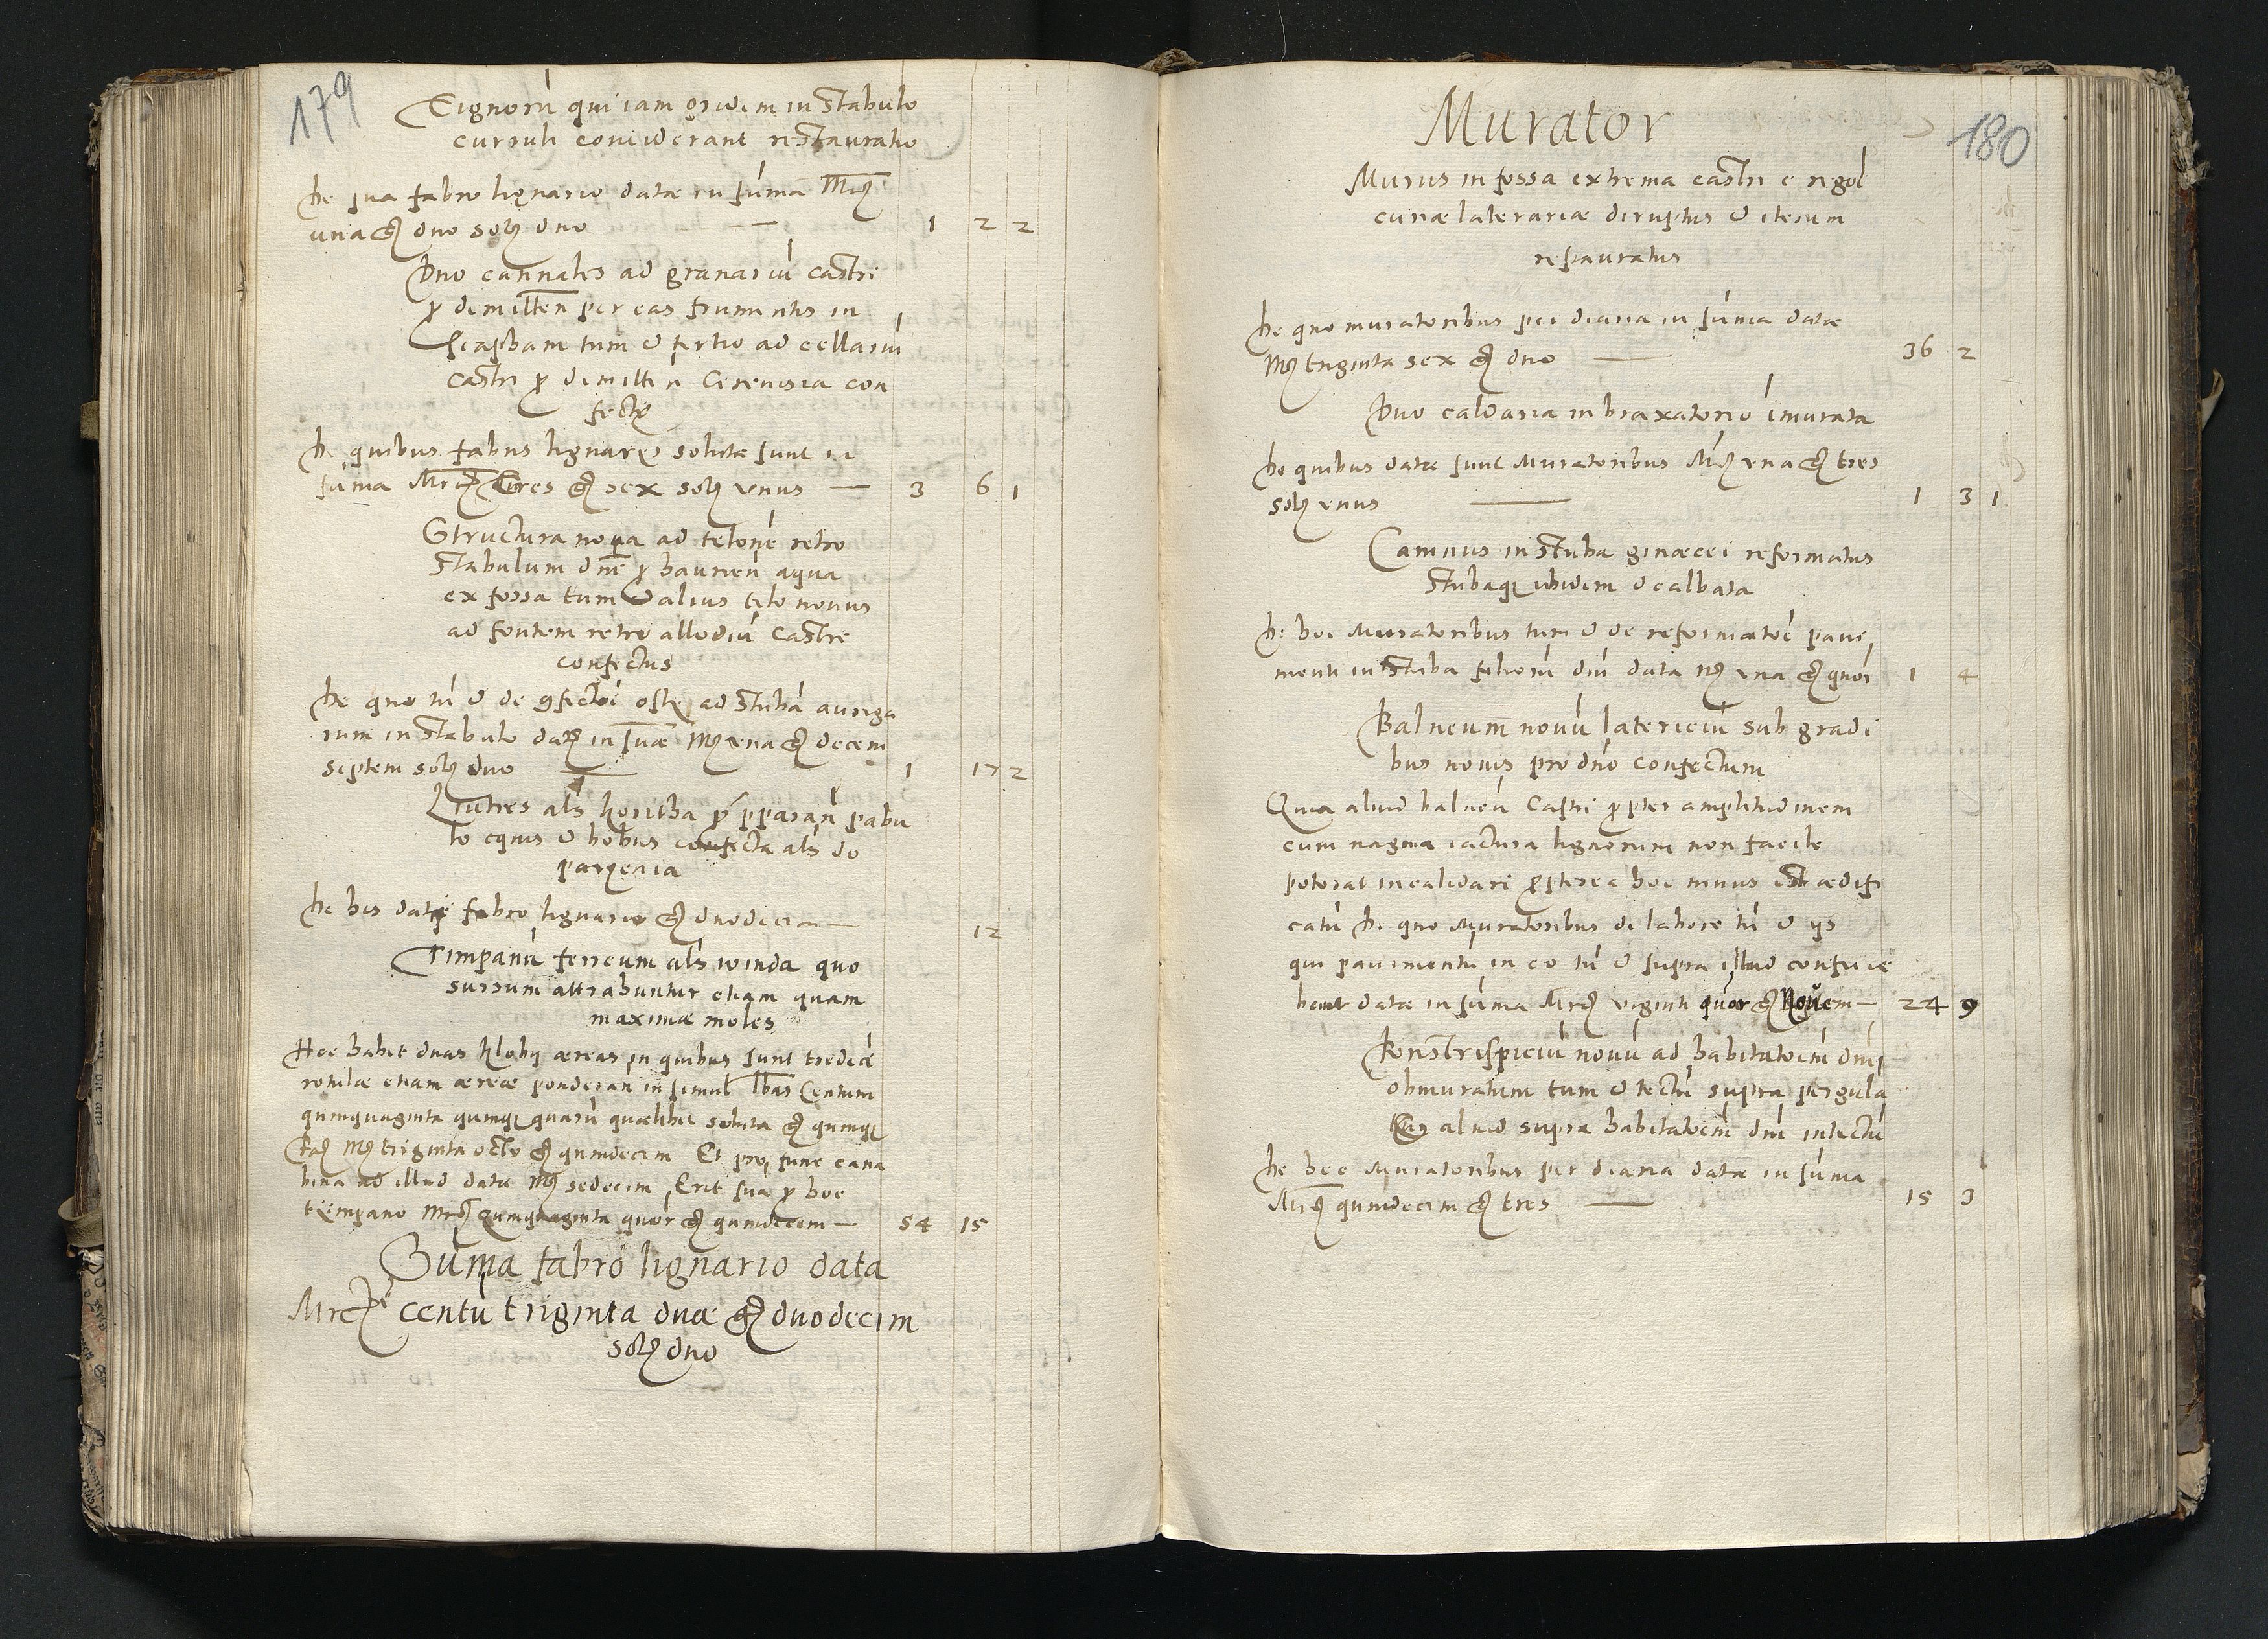 179
Lignorũ qui iam pridem in stabulo
cursuli conciderant restauratio
De sua fabro lignario datæ in sũma Mrc
una gr duo solid duo — 1 2 2
Duo cannales ad granariũ castri
p dimitten per eas frumentis in
scapham tum et tertio ad cellariũ
castri p dimitten Cerevisia con
fectę
De quibus fabris lignarys solutæ sunt in
sũma Mrc tres gr sex solid unus — 3 6 1
Structura nova ad telonẽ retro
stabulum dni p haurien aqua
ex fossa tum et alius telo novus
ad fontem retro allodiũ castre
confectus
De quo tũ et de confectõe ostÿ ad stubã auriga
rum in stabulo datę in sũa Mrc una gr decem
septem solid duo — 1 17 2
Lintres als koritha p pparan pabu
lo equis et bobus confecta als do
parzenia
De his datę fabro lignario gr duodecim — 12
Timpanũ ferreum als winda quo
sursum attrahuntur etiam quam
maximæ moles
Hoc habet duas klobÿ æreas in quibus sunt tredecẽ
rotulæ etiam æreæ ponderan in simul lbas Centum
quinquaginta quinqꝫ quarũ quælibet soluta gr quinqꝫ
Fac Mrc triginta octo gr quindecim Et pro fune cana
bina ad illud datæ Mrc sedecim, Erit sũa p hoc
tympano Mrc quinquaginta quor gr quindecem — 54 15
Sũma fabro lignario data
Mrc centũ triginta duæ gr duodecim
solid duo
Murator
180
Murus in fossa extrema castri e regol
curiæ laterariæ diruptus et iterum
restauratus
De quo muratoribus per diaria in sũma datæ
Mrc triginta sex gr duo — 36 2
Duo caldaria in braxatorio ĩmurata
De quibus datæ sunt Muratoribus Mrc una gr tres
solid unus — 1 3 1
Caminus in stuba ginæcei reformatus
stubaqꝫ ibidem dealbata
De hoc Muratoribus tum et de reformatõe pavi
menti in stuba filiorũ dni data Mrc una gr quor 1 4
Balneum novũ latericiũ sub gradi
bus novis pro dno confectum
Quia aliud balneũ Castri ppter amplitudinem
cum magna iactura lignorum non facile
poterat incalidari ppterea hoc minus est ædifi
catũ De quo Muratoribus de labore tũ et ijs
qui pavimentũ in eo tũ et supra illud confecie
bant datæ in sũma Mrc viginti quor gr Novem — 24 9
Konstrispiciũ novũ ad habitatõem dni
obmuratum tum et tectũ supra pergula
aliud supra habitatõem dni intectũ
De hoc Muratoribus per diaria datæ in sũma
Mrc quindecim gr tres — 15 3